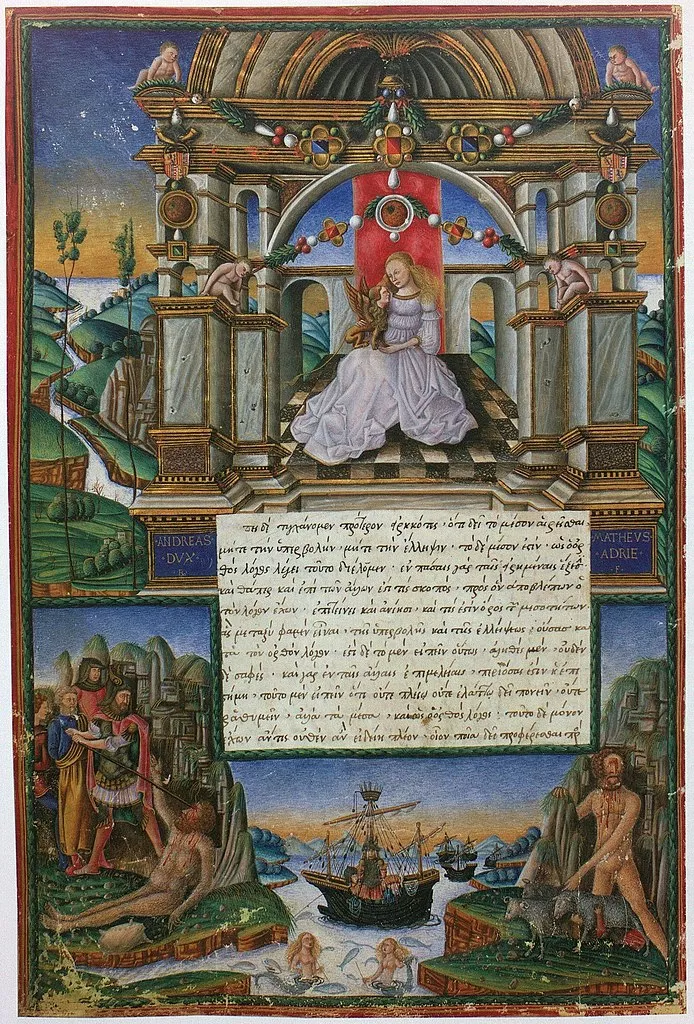 δὲ τυγχάνομεν πρότερον εἰρηκότες · ὅτι δεῖ τὸ μέσον αἱρεῖσθαι
μήτε τὴν ὑπερβολὴν · μήτε τὴν ἔλλειψιν · τὸ δὲ μέσον ἐστὶν · ὡς ὁ ὀρ
θὸς λόγος λέγει τοῦτο διέλωμεν · ἐν πάσαις γὰρ ταῖς εἰρημέναις ἕξεσι
καθάπερ καὶ ἐπὶ τῶν ἄλλων ἐστί τις σκοπὸς · πρὸς ὃν ἀποβλέπων ὁ
τὸν λόγον ἔχων · ἐπιτείνει καὶ ἀνίησι · καὶ τίς ἐστὶν ὅρος τῶν μεσοτήτων
ἃς μεταξύ φαμεν εἶναι · τῆς ὑπερβολῆς καὶ τῆς ἐλλείψεως · οὔσας κα
τὰ τὸν ὀρθὸν λόγον · ἔστι δὲ τὸ μὲν εἰπεῖν οὕτως · ἀληθὲς μὲν · οὐδὲν
δὲ σαφές · καὶ γὰρ ἐν ταῖς ἄλλαις ἐπιμελείαις · περὶ ὅσας ἐστὶν ἐπι
στήμη · τοῦτο μὲν εἰπεῖν ὅτι οὔτε πλείω οὔτε ἐλάττω δεῖ πονεῖν · οὔτε
ῥαθυμεῖν · ἀλλὰ τὰ μέσα · καὶ ὡς ὁ ὀρθὸς λόγος · τοῦτο δὲ μόνον
ἔχων ἄν τις οὐθὲν ἂν εἰδείη πλέον · οἷον ποῖα δεῖ προσφέρεσθαι πρὸ
ANDREAS
DVX
MATHEVS
ADRIE
F